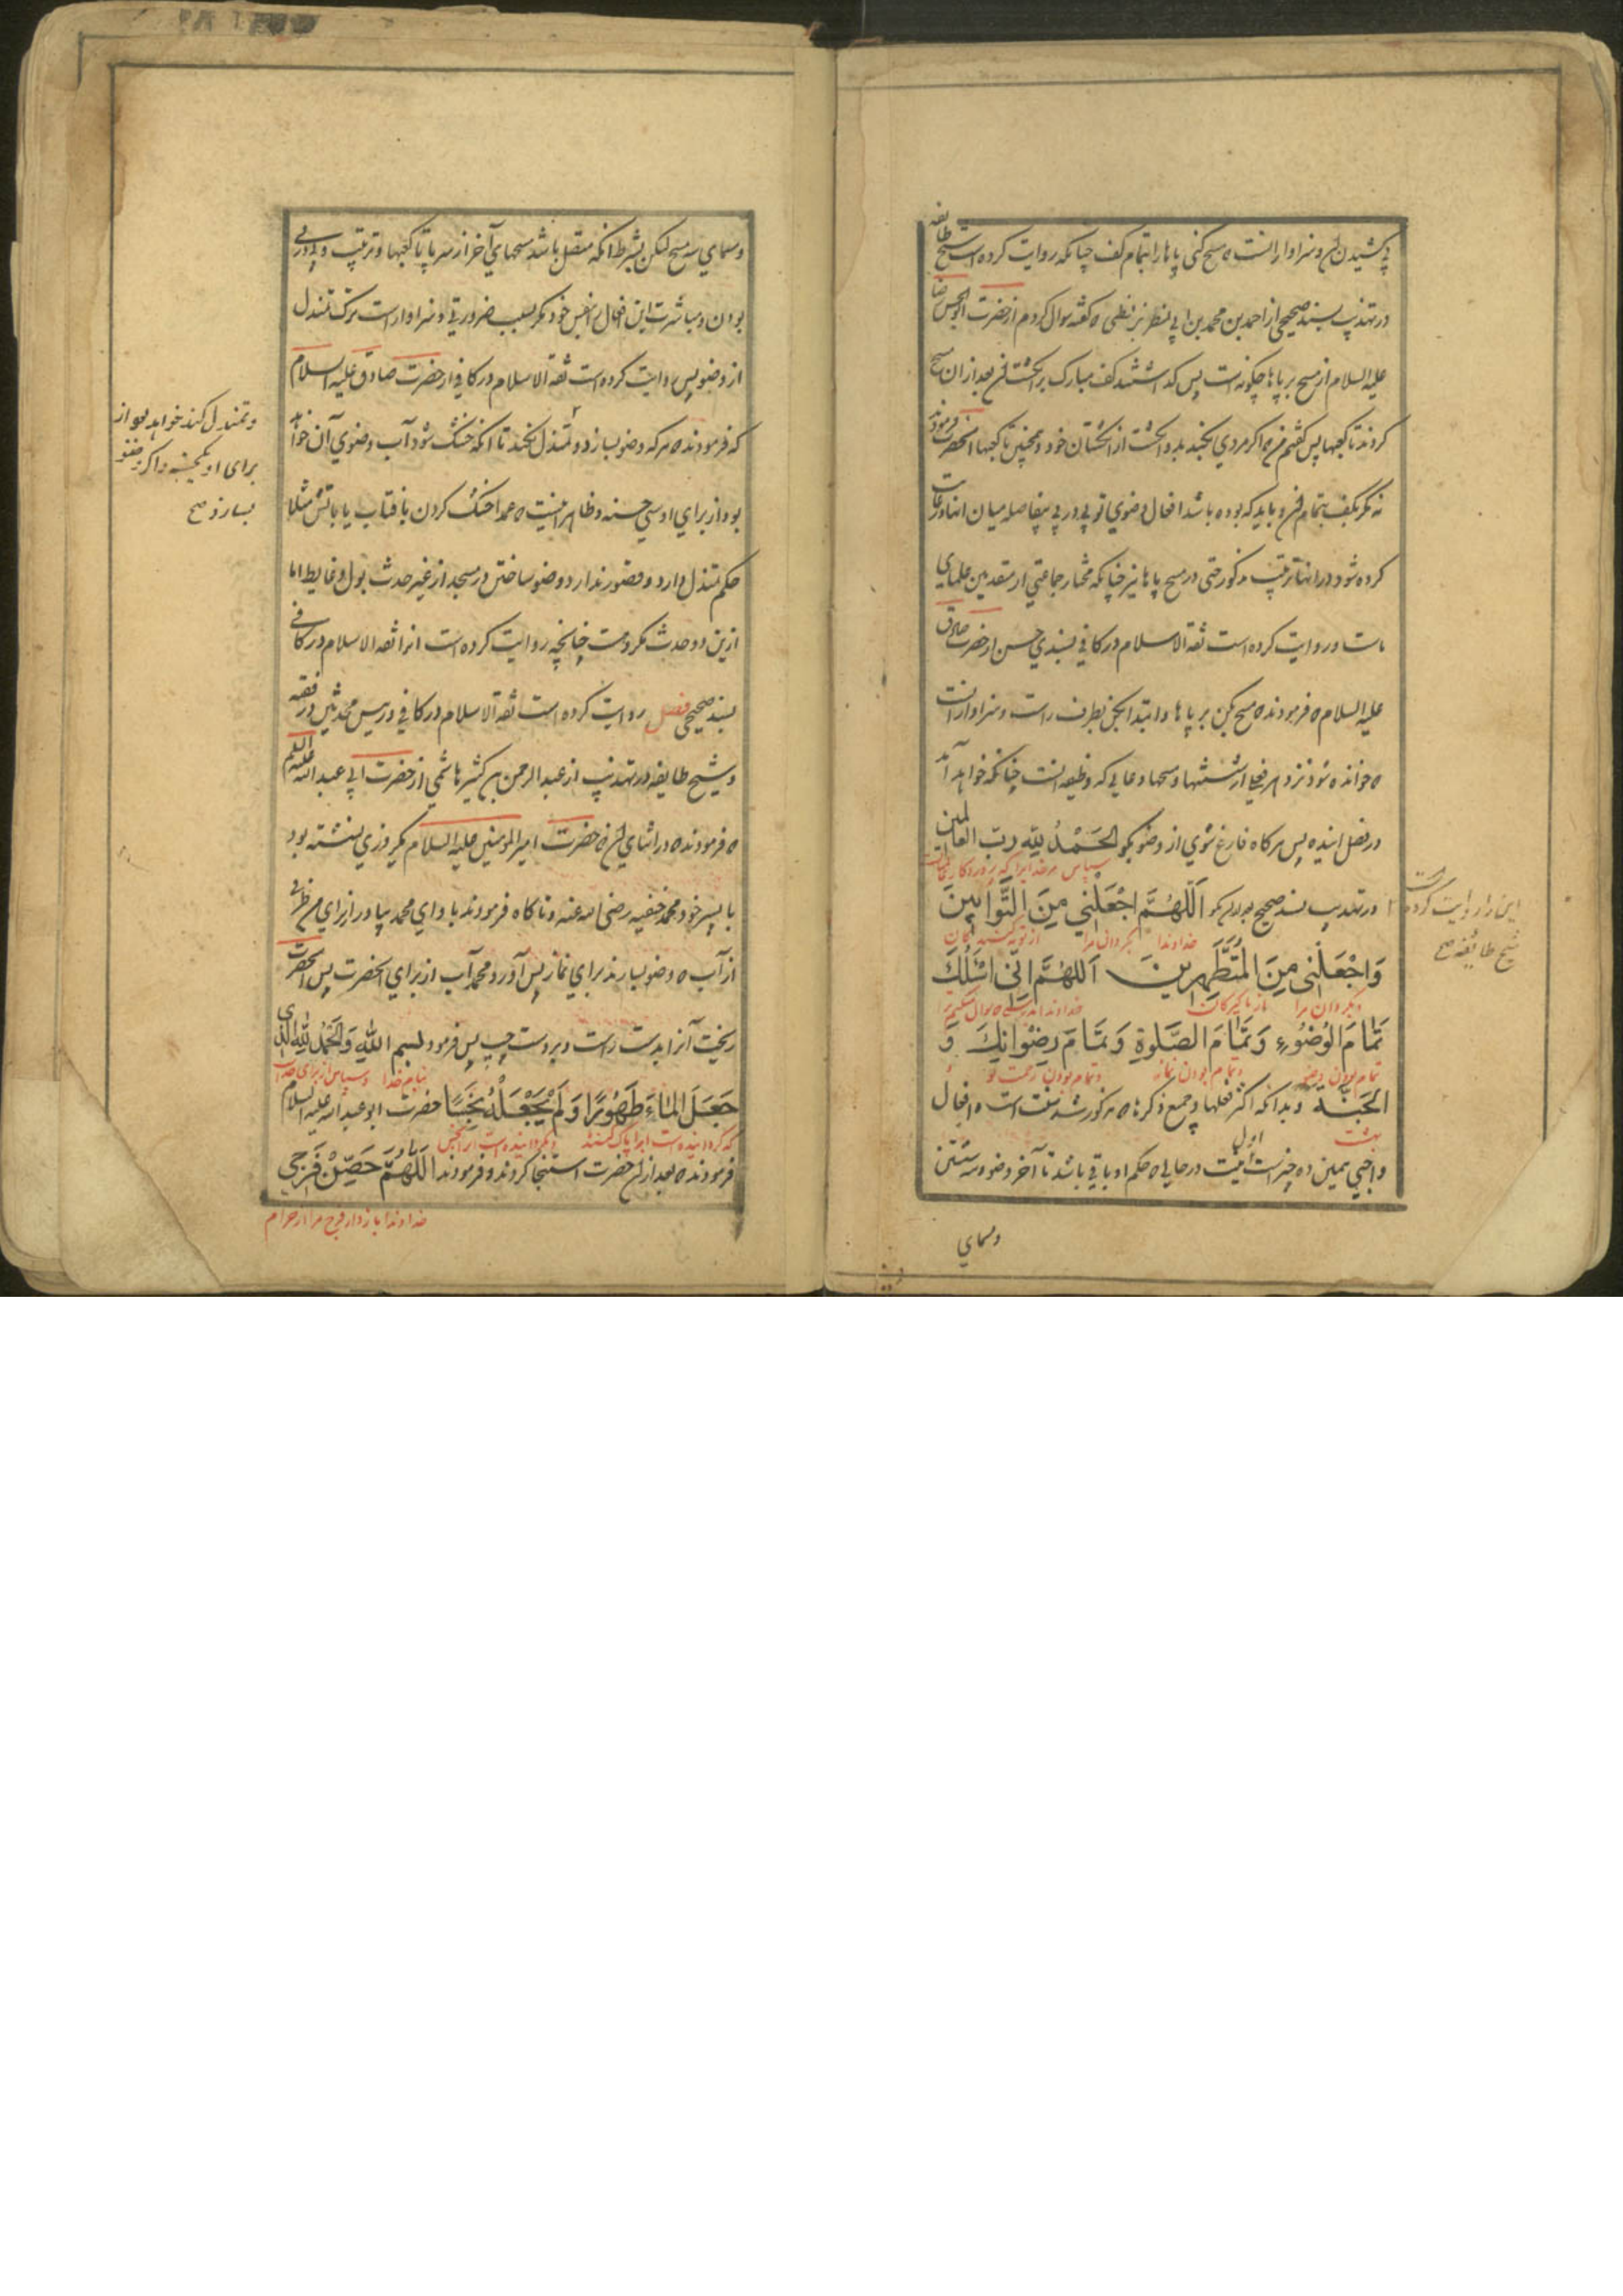 پی کشیدن آن و سزاوار آنست که مسح کنی پاها را بتمام کف چنانکه روایت کرده است شیخ طایفه
در تهذیب بسند صحیح از احمد بن محمد بن ابی نصر بزنطی که گفته سوال کردم از حضرت ابو الحسن رضا
علیه السلام از مسح بر پاها چکونه است پس گذاشتند کف مبارک بر انگشتان بعد از ان مسح
کردند تا کعبها پس گفتم من که اگر مردی بکند بدو انگشت از انگشتان خود همچنین تا کعبها آنحضرت فرمودند
نه مگر بکف بتمام آن و باید که بوده باشد افعال وضوی تو پی در پی بیفاصله میان انها و رعایت
کرده شود در انها ترتیب مذکور حتی در مسح پاها نیز چنانکه مختار جماعتی از متقدمین علمای
ماست و روایت کرده است ثقة الاسلام در کافی بسندی حسن از حضرت صادق
علیه السلام که فرمودند که مسح بکن بر پاها و ابتدا بکن بطرف راست و سزاوار آنست
که خوانده شود نزد هر فعلی از شستنها و مسحها دعایی که وظیفه آنست چنانکه خواهد آمد
در فصل اینده پس هرگاه فارغ شوی از وضو بگو الحَمْدُ لِلّهِ رَبّ العالمین
سپاس مر خدایرا که پروردگار عالمیان است
و در تهذیب بسند صحیح بگو اَللّهُمَّ اجْعَلْنی مِنَ التَّوّابینَ
خداوندا بگردان مرا از توبه کنندگان
این را روایت کرده است
شیخ طایفه صح
وَاجْعَلْنی مِنَ المُتَطَهِّرینَ اَللهُمَّ اِنّی اَسْئَلُکَ
و بگردان مرا از پاکیزگان خداوندا
تَمامَ الوُضُوءِ وَتَمامَ الصَّلوةِ وَتَمامَ رِضْوانِکَ وَ
تمام بودن وضو و تمام بودن نماز و تمام بودن رحمت تو
الجَنَّة و بدانکه اکثر فعلها و جمیع ذکرها که مذکور شد سنت است و افعال
بهشت
واجبی همین ده چیز است اول نیت در حالی که حکم او باقی باشد تا آخر وضو و سه شستن
و مسهای
و مسهای سه مسح لیکن بشرط آنکه متصل باشد مسحهای آخر از سر پا تا کعبها و ترتیب و پی در پی
بودن و مباشرت این افعال بنفس خود مگر بسبب ضرورتی و سزاوار است ترک تمندل
از وضو پس روایت کرده است ثقة الاسلام در کافی از حضرت صادق علیه السلام
که فرمودند که هر که وضو بسازد و تمندل نکند تا آنکه خشک شود آب وضوی آن خواهد
و تمندل کند خواهد بود از
برای او یکحسنه و اگر وضو
بسازد صح
بود از برای او سی حسنه و ظاهر اینست که عمدا خشک کردن بافتاب یا باتش مثلا
حکم تمندل دارد و قصور ندارد وضو ساختن در مسجد از غیر حدث بول و غایط اما
ازین دو حدث مکروهست چنانچه روایت کرده است انرا ثقة الاسلام در کافی
بسند صحیح فصل روایت کرده است ثقة الاسلام در کافی و رییس محدثین در فقیه
و شیخ طایفه در تهذیب از عبد الرحمن بن کثیر هاشمی از حضرت ابی عبد الله علیه السلام
که فرمودند که در اثنای آن که حضرت امیر المومنین علیه السلام یکروزی نشسته بود
با پسر خود محمد حنفیه رضی الله عنه و ناکاه فرمودند باو ای محمد بیاور از برای من ظرفی
از آب که وضو بسازند برای نماز پس آورد محمد آب از برای آنحضرت پس آنحضرت
ریخت آنرا بدست راست و بر دست چپ پس فرمود بسم الله وَالحَمْدُ لِلّهِ الَّذی
بنام خدا و سپاس از برای خدا است
جَعَلَ الماءَ طَهُورًا وَلَمْ یَجْعَلْهُ نَجَسًا حضرت ابو عبد الله علیه السلام
که گردانیده است آبرا پاک کننده و نگردانیده است آنرا نجس
فرمودند که بعد از ان حضرت استنجا کردند و فرمودند اَللّهُمَّ حَصِّنْ فَرْجی
خداوندا باز دار فرج مرا از حرام